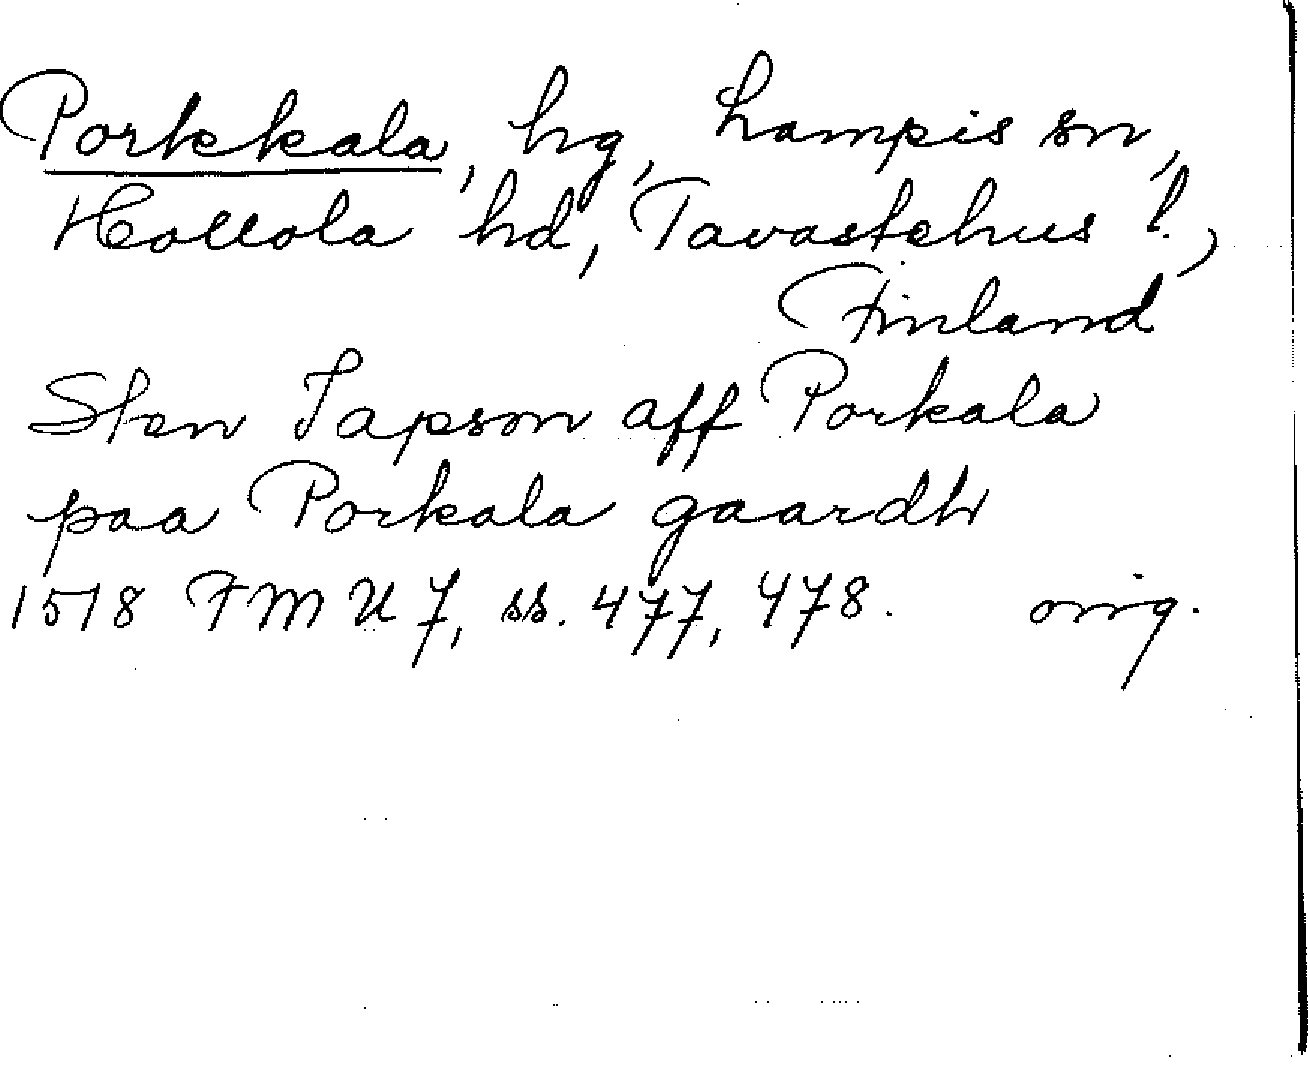 Porkkala, hg, Lampis sn,
Hollola hd, Tavastehus l.,
Finland
Sten Japson aff Porkala
paa Porkala gaardh
1518 FMU 7, ss. 477, 478. orig.